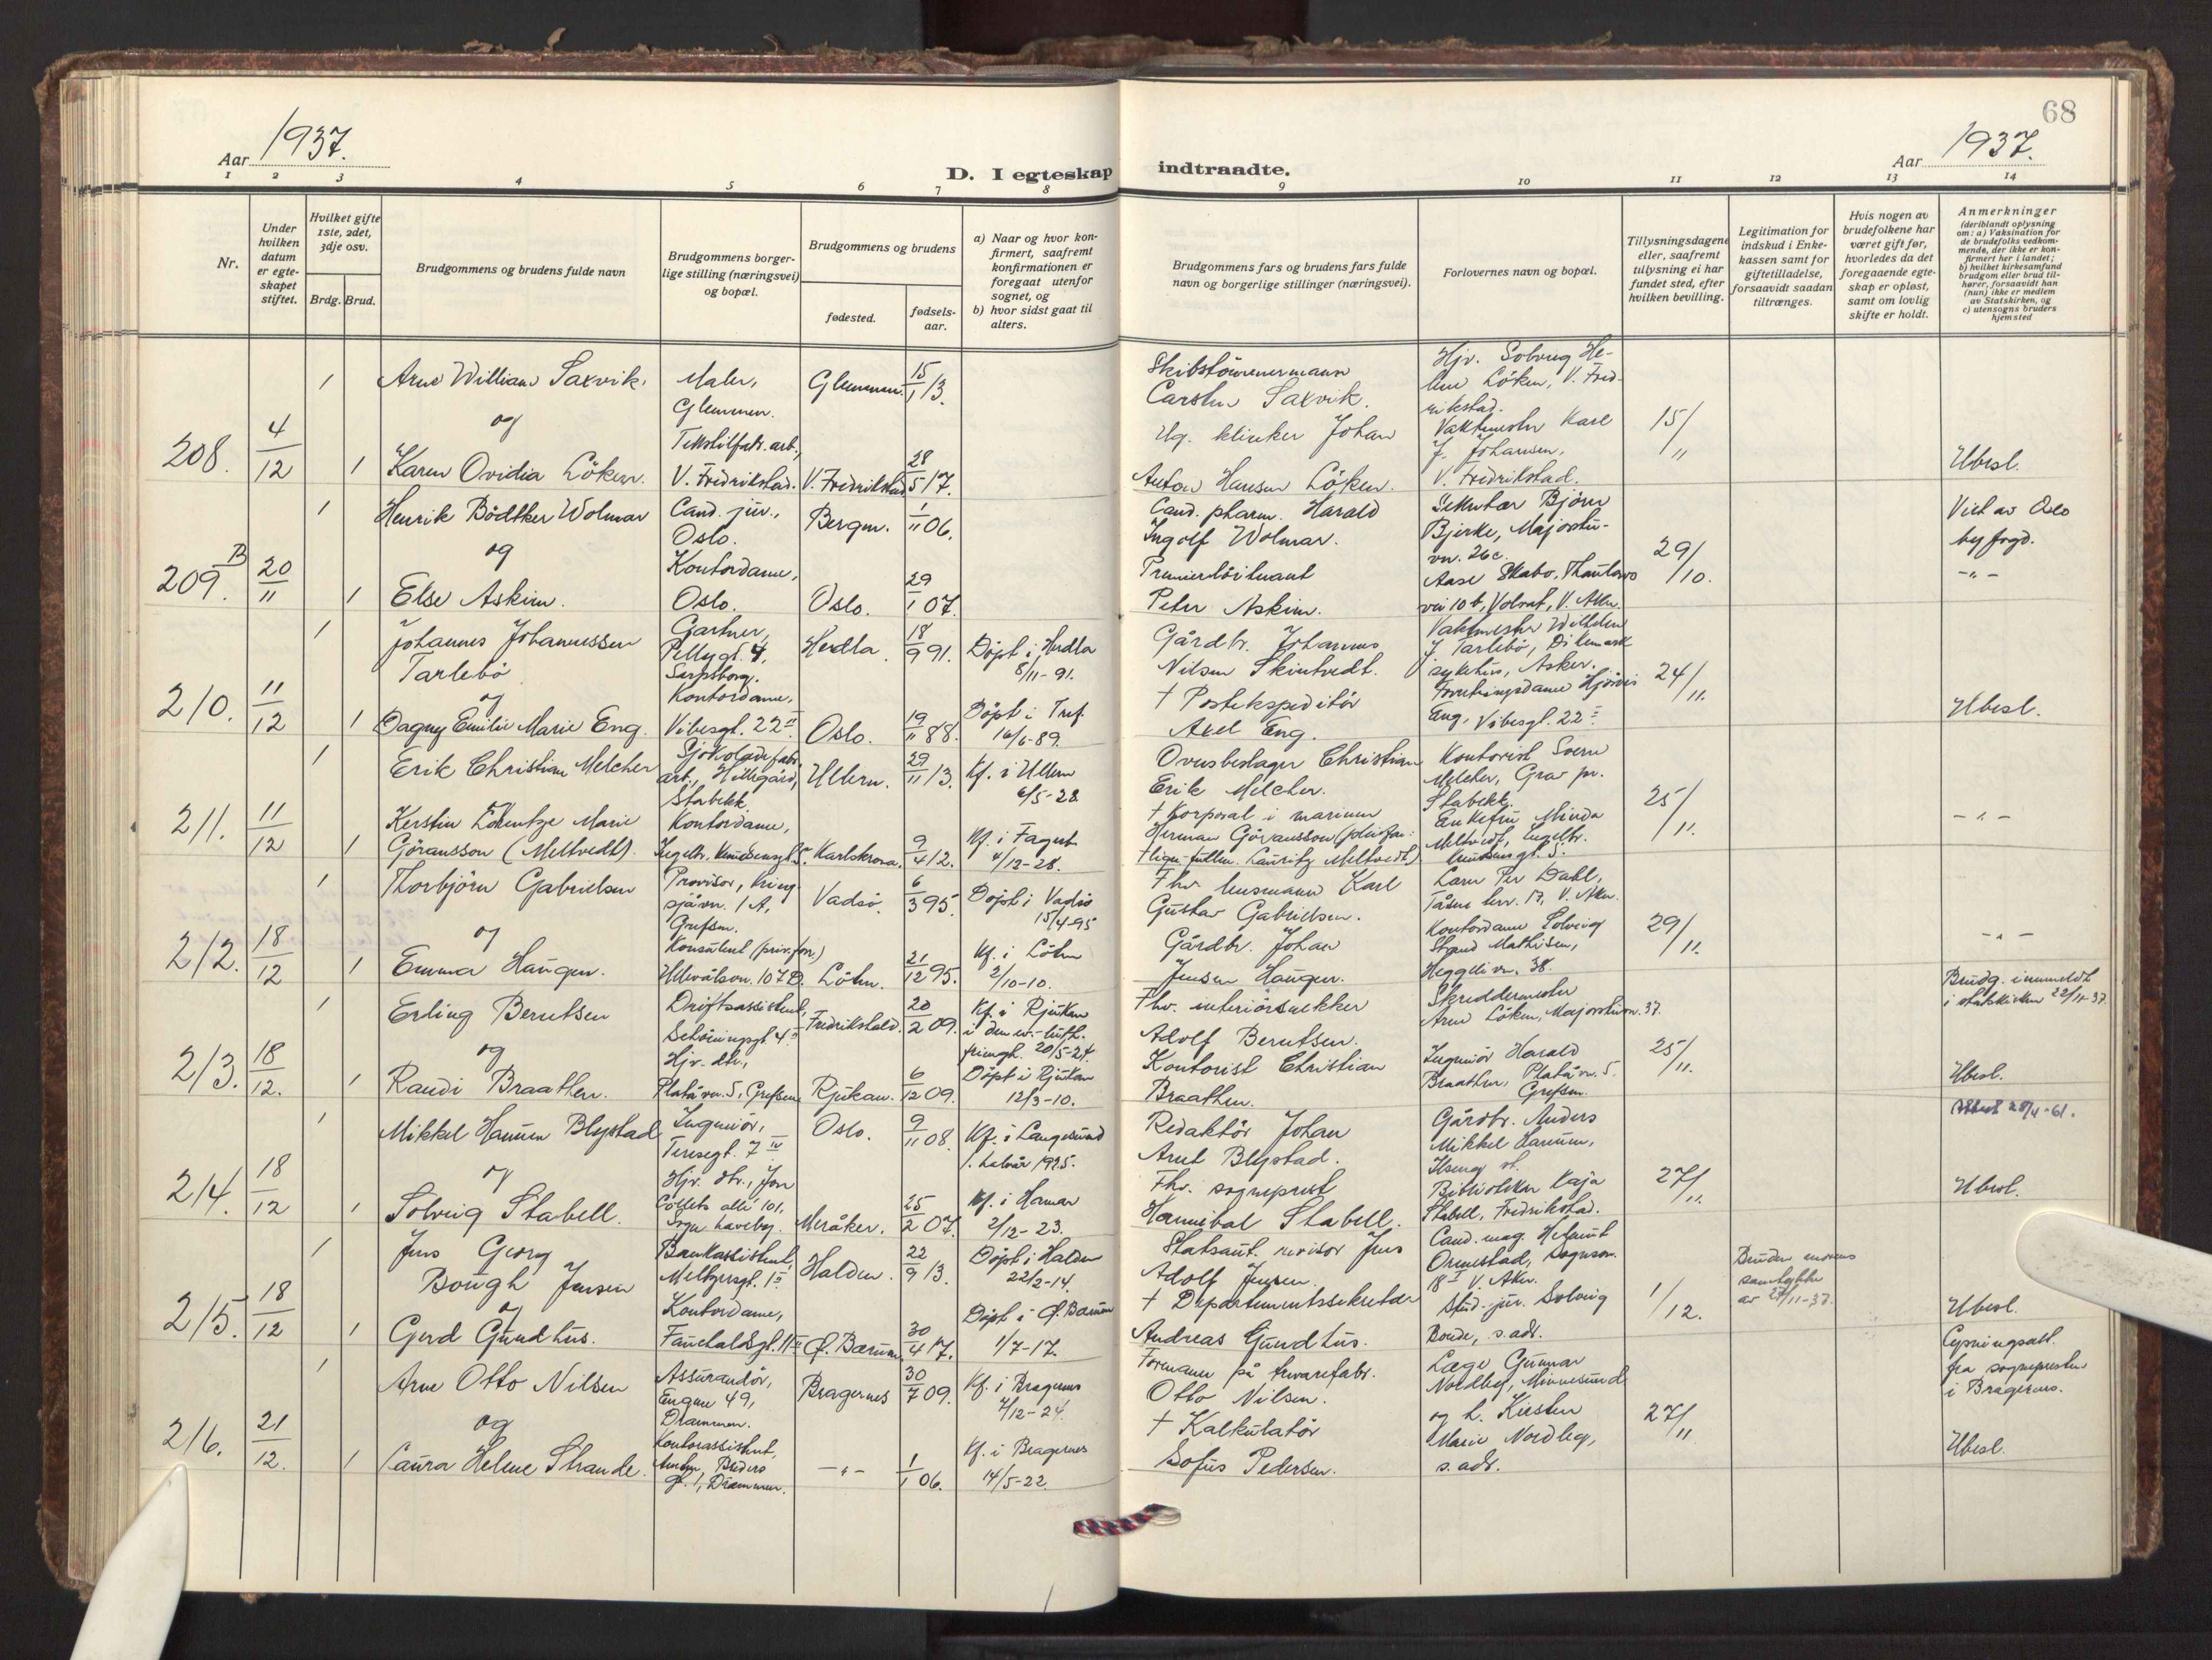 68
Aar 1937.
D. I egteskap indtraadte.
Aar 1937.
1 2 3 4 5 6 7 8 9 10 11 12 13 14
Nr.
Under hvilken datum er egteskapet stiftet.
Hvilket gifte 1ste, 2det, 3dje osv.
Brdg. Brud.
Brudgommens og brudens fulde navn
Brudgommens borgerlige stilling (næringsvei) og bopæl.
Brudgommens og brudens
fødested.
fødselsaar.
a) Naar og hvor konfirmert, saafremt konfirmationen er foregaat utenfor sognet, og
b) hvor sidst gaat til alters.
Brudgommens fars og brudens fars fulde navn og borgerlige stillinger (næringsvei).
Forlovernes navn og bopæl.
Tillysningsdagene eller, saafremt tillysning ei har fundet sted, efter hvilken bevilling.
Legitimation for indskud i Enkekassen samt for giftetilladelse, forsaavidt saadan tiltrænges.
Hvis nogen av brudefolkene har været gift før, hvorledes da det foregaaende egteskap er opløst, samt om lovlig skifte er holdt.
Anmerkninger
(deriblandt oplysning om: a) Vaksination for de brudefolks vedkommende, der ikke er konfirmert her i landet;
b) hvilket kirkesamfund brudgom eller brud tilhører, forsaavidt han (hun) ikke er medlem av Statskirken, og
c) utensogns bruders hjemsted
208. 4/12
1 Arne William Saxvik. Maler, Glemmen. Glemmen. 15/1 13.
og
1 Karen Ovidia Löken. Tekstilfabr. arb., V. Fredrikstad. V. Fredrikstad 28/5 17.
Skibstömmermann
Carsten Saxvik.
Johan
Anton Hansen Löken.
Hjv. Solveig Helene Löken, V. Fredrikstad.
Vaktmester Karl J. Johansen,
V. Fredrikstad.
15/11
Ubesl.
209. B 20/11
1 Henrik Bödtker Wolmar Cand. jur., Oslo. Bergen. 1/11 06.
og
1 Else Askim. Kontordame, Oslo. Oslo. 29/1 07.
Cand. pharm. Harald
Ingolf Wolmar.
Premierlöitnant
Peter Askim.
Sekretær Björn
Bjerke, Majorstuvn. 26c.
Aase Skabo,
vei 10 b, V. Aker.
29/10.
Viet av Oslo
byfogd.
-"-
210. 11/12
1 Johannes Johannessen
Tarlebö Gartner, Pellygt. 4, Sarpsborg. Herdla 18/9 91. Döpt i Herdla 8/11-91.
og
1 Dagny Emilie Marie Eng. Kontordame, Vibesgt. 22 II Oslo. 19/11 88. Döpt i Tref. 16/6-89.
Gårdbr. Johannes
Nilsen
† Postekspeditör
Axel Eng.
Vaktmester Wilhelm
J. Tarlebö, Dikemark
sykehus, Asker.
Forretningsdame Hjördis
Eng, Vibesgt. 22
24/11.
Ubesl.
211. 11/12
1 Erik Christian Melcher arb., Stabekk. Ullern. 29/11 13. Kf. i Ullern 6/5-28.
1 Kerstin Marie
Göransson (Meltvedt). Kontordame, Karlskrona. 9/4 12. Kf. i Fagerb. 4/12-28.
Ovnsbeslager Christian
Erik Melcher.
† Korporal i marinen
Herman Göransson (pleiefar:
Lauritz Meltvedt)
Kontorist Sverre
Melcher,
Stabekk.
Enkefru Minda
Meltvedt, Engelbr.
Knudsens gt. 5.
25/11.
-"-
212. 18/12
1 Thorbjörn Gabrielsen Provisor, Kringsjåvn. 1 A, Grefsen. Vadsö. 6/3 95. Döpt i Vadsö 15/4-95
og
1 Emma Haugen. Konsulent (priv. forr.) Ullevålsvn. 107 D. Löten. 21/12 95. Kf. i Löten 2/10-10.
Fhv. Karl
Gustav Gabrielsen.
Gårdbr. Johan
Jensen Haugen.
Per Dahl,
Tåsen terr. 17, V. Aker.
Kontordame Solveig
Strand Mathisen,
Heggeli vn. 38.
29/11.
-"-
Brudg. innmeldt
i statskirken 22/11-37.
213. 18/12.
1 Erling Berntsen Driftsassistent, Schöningsgt. 4 Fredrikshald. 20/2 09. Kf. i Rjukan
i den ev.-luth.
frimgh. 20/5-24.
og
1 Randi Braathen. Hjv. dtr., Platåvn. 5, Grefsen Rjukan. 6/12 09. Döpt i Rjukan 12/3-10.
Fhv. interiörsnekker
Adolf Berntsen.
Kontorist Christian
Braathen.
Skreddermester
Arne Löken, Majorstuvn. 37.
Ingeniör Harald
Braathen, Platåvn. 5.
Grefsen.
25/11.
Ubesl.
214. 18/12
1 Mikkel Hamnen Blystad Ingeniör, Teresegt. 7 IV Oslo. 9/11 08. Kf. i Langesund
1. halvår 1925.
og
1 Solveig Stabell. Hjv. dtr., Jon Colletts allé 101, Sogn haveby. Meråker. 25/2 07. Kf. i Hamar 2/12-23.
Redaktör Johan
Arnt Blystad.
Fhv. sogneprest
Hannibal Stabell.
Gårdbr. Anders
Mikkel Hamnen,
Ilseng st.
Bibliotekar Kaja
Stabell, Fredrikstad.
27/11.
Ubesl.
215. 18/12
1 Jens Georg
Bough Jensen Bankassistent, Meltzersgt. 1 II Halden. 22/9 13. Döpt i Halden 22/2-14.
og
1 Gerd Gundhus. Kontordame, Fauchaldsgt. 11 Ø. Bærum. 30/4 17. Döpt i Ø. Bærum 1/7-17.
Statsaut. revisor Jens
Adolf Jensen.
† Departementssekretær
Andreas Gundhus.
Cand. mag. Helmut
Ormestad, Sognsvn.
18 I V. Aker.
Stud. jur. Solveig
Bonde, s. adr.
1/12.
Bruden morens
samtykke
av 27/11-37.
Ubesl.
216. 21/12.
1 Arne Otto Nilsen Assurandör, Engene 49, Drammen. Bragernes 30/7 09. Kf. i Bragernes 7/12-24.
og
1 Laura Helene Strande. Kontorassistent, gt. 1, Drammen. -"- 1/1 06. Kf. i Bragernes 14/5-22.
Formann på trevarefabr.
Otto Nilsen.
† Kalkulatör
Sofus Pedersen.
Læge Gunnar
Nordbey, Minnesund
og h. Kirsten
Marie Nordbey,
s. adr.
27/11
Lysningsatt.
fra sognepresten
i Bragernes.
Ubesl.